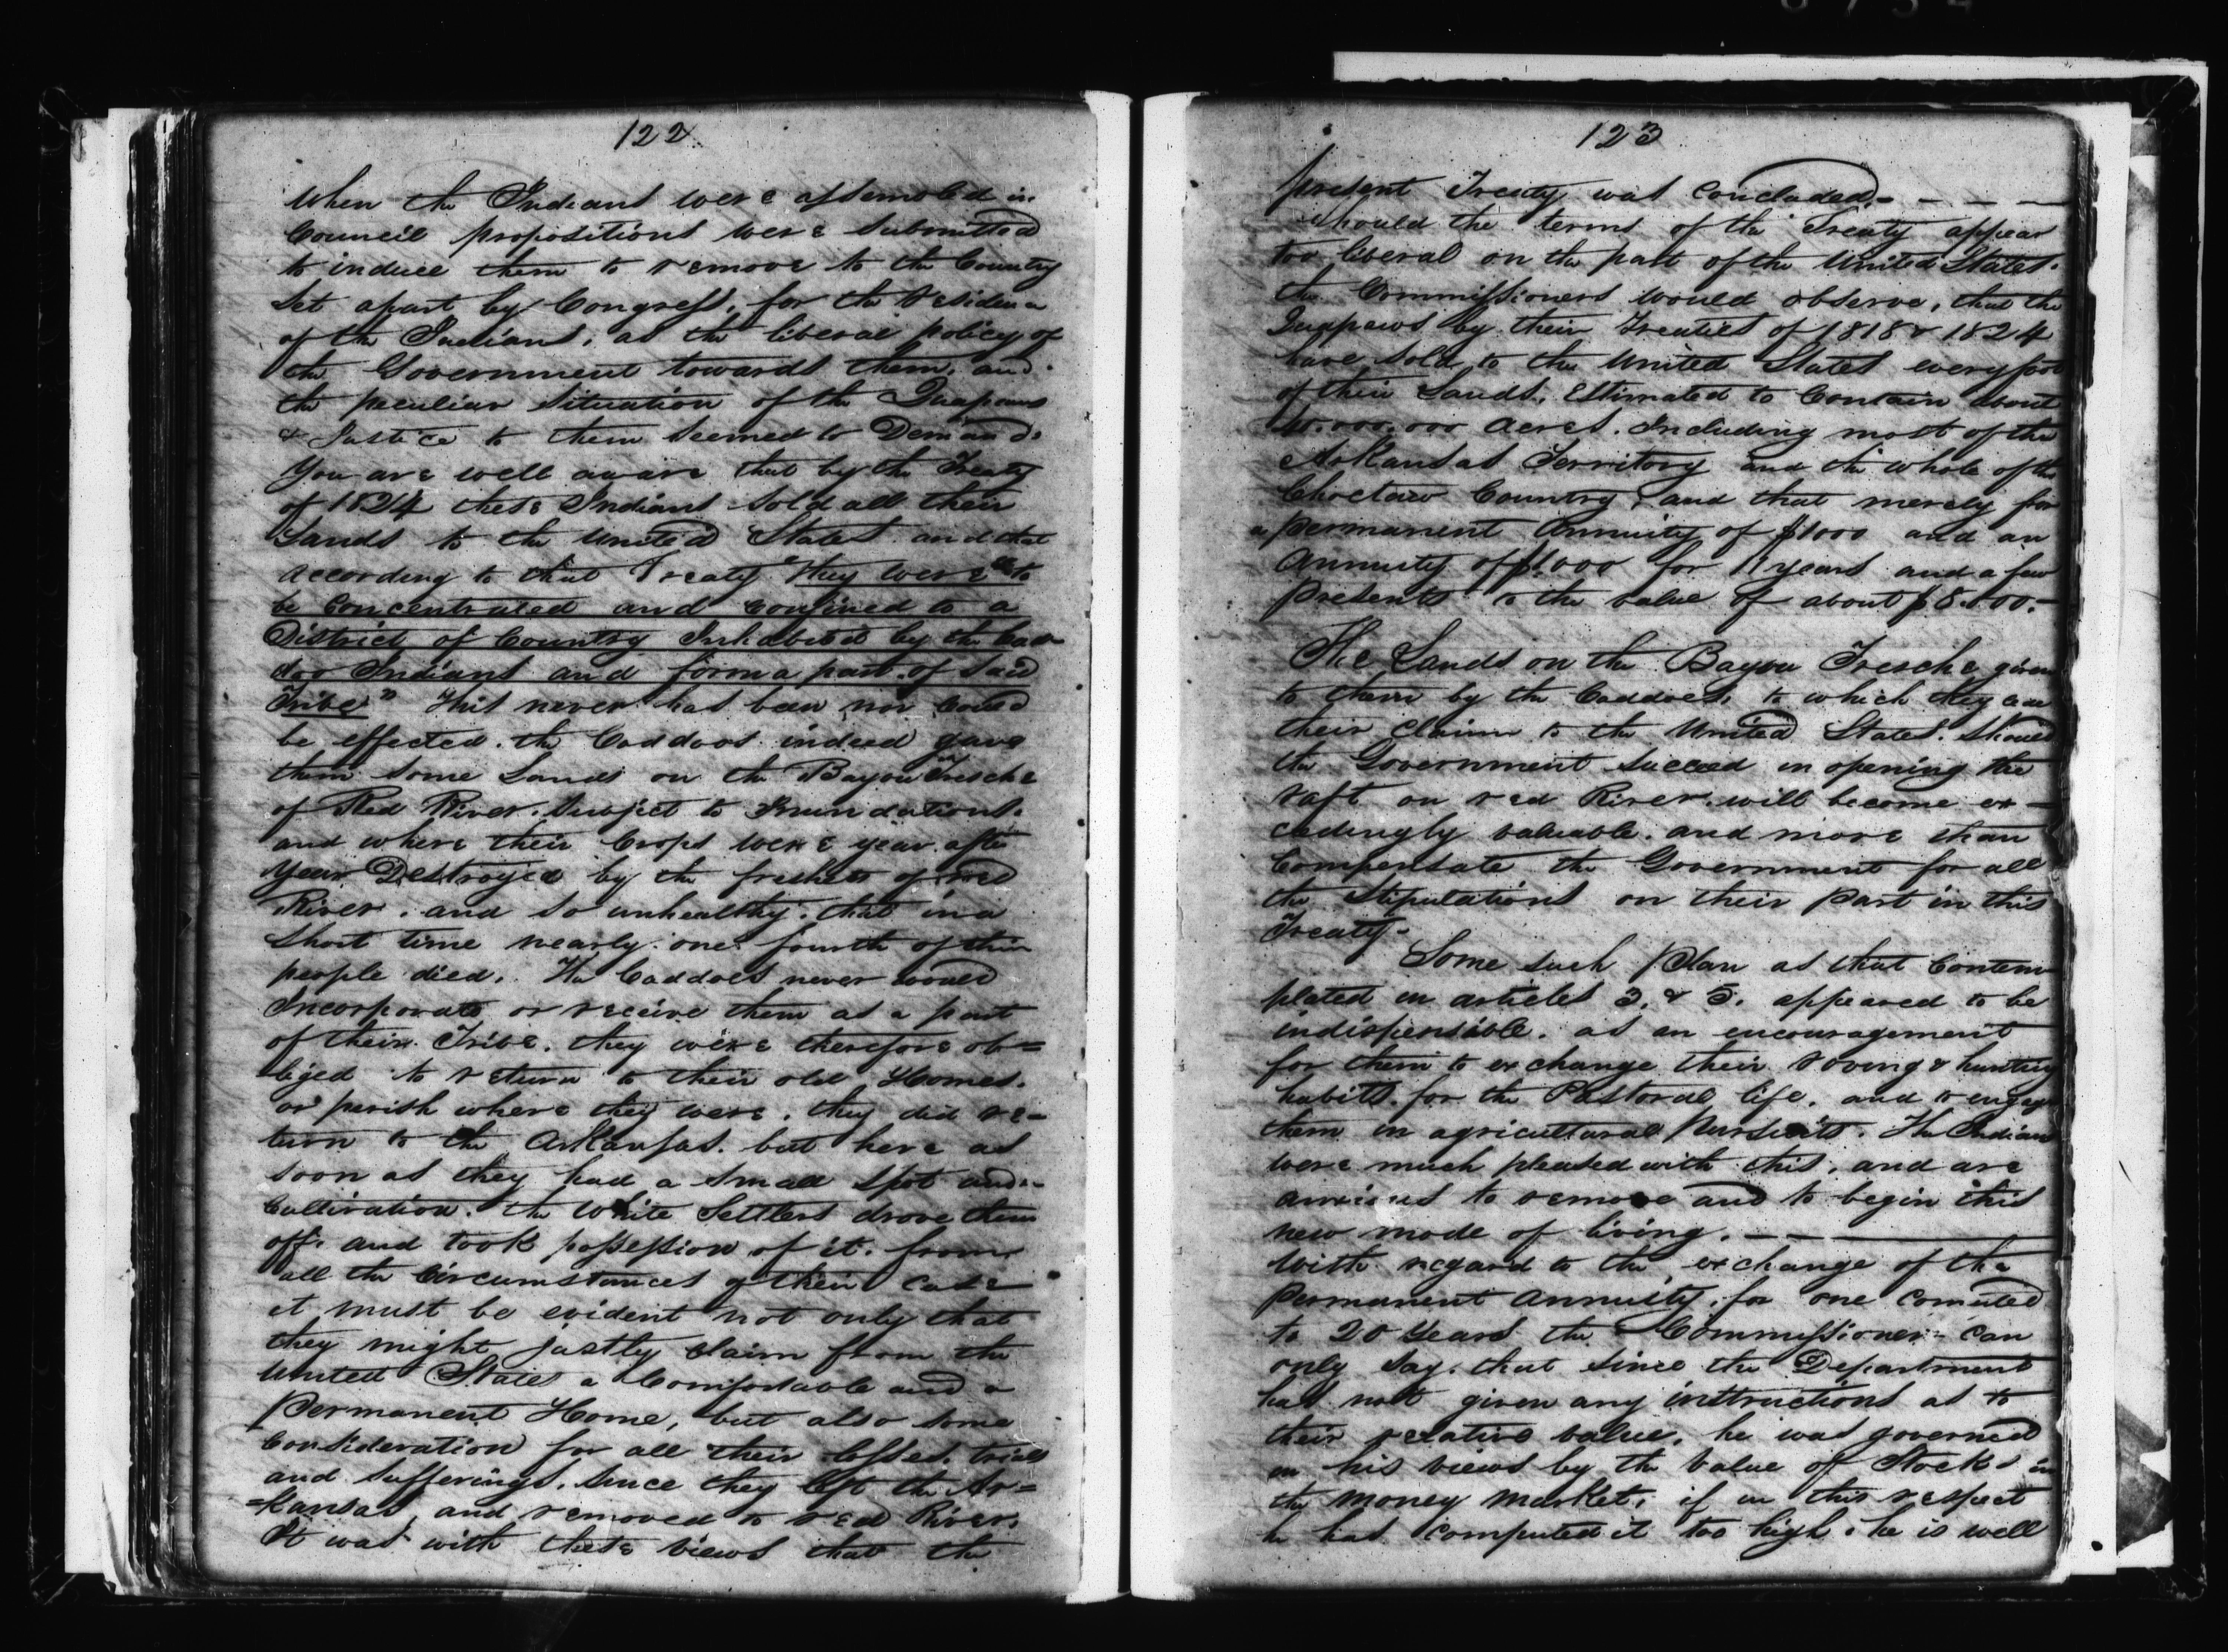 122
When the Indians were assembled in
Council propositions were submitted
to induce them to remove to the Country
Set apart by Congress, for the residence
of the Indians, as the liberal policy of
the Government towards them, and
the peculiar situation of the Quapaws
& Justice to them seemed to Demand.
You are well aware that by the Treaty
of 1824 these Indians sold all their
Lands to the United States and that
according to that Treaty they were "to
be Concentrated and confined to a
District of Country Inhabited by the Cad=
doo Indians and form a part of said
Tribe" This never has been nor could
be effected. the Caddoos indeed gave
them some Lands on the Bayou Tresche
of Red River. Subject to Inundations.
and where their Crops were year after
year Destroyed by the freshets of red
River. and so unhealthy. that in a
Short time nearly one fourth of their
people died. The Caddoes never would
Incorporate or receive them as a part
of their Tribe. they were therefore ob=
liged to return to their old Homes.
or perish where they were. they did re=
turn to the Arkansas. but here as
soon as they had a small spot under
Cultivation. the White Settlers drove them
off. and took possession of it. from
all the Circumstances of their case
it must be evident not only that
they might justly claim from the
United States a Comfortable and a
permanent Home, but also some
Consideration for all their losses. trials
and sufferings. Since they left the Ar=
=kansas, and removed to red River.
It was with these views that the
123
present Treaty was Concluded.- - - -
should the terms of the Treaty appear
too liberal on the part of the United States.
the Commissioners would observe, that the
Quapaws by their Treaties of 1818 & 1824
have sold to the United States every foot
of their Lands, Estimated to Contain about
000.000 acres. Including most of the
Arkansas Territory and the whole of the
Choctaw Country, and that merely for
a permanent Annuity of $1000 and an
Annuity of $1.000 for 11 years and a few
presents to the value of about $8.000.-
The Lands on the Bayou Tresche given
to them by the Caddoes, to which they cede
their claim to the United States. Should
the Government succeed in opening the
raft on red River. will become ex-
cedingly valuable. and more than
Compensate the Government for all
the Stipulations on their part in this
Treaty-
Some such Plan as that Contem
plated in articles 3. & 5. appeared to be
indispensible. as an encouragement
for them to exchange their roving & hunting
habits. for the Pastoral life, and to engage
them in agricultural pursuits. The Indians
were much pleased with this, and are
anxious to remove and to begin this
new mode of living. - - -
With regard to the exchange of the
permanent annuity, for one
to 20 Years the Commissioner can
only say. that since the Department
has not given any instructions as to
their relative value, he was governed
in his views by the Value of Stocks in
the money market, if in this respect
he has computed it too high. he is well